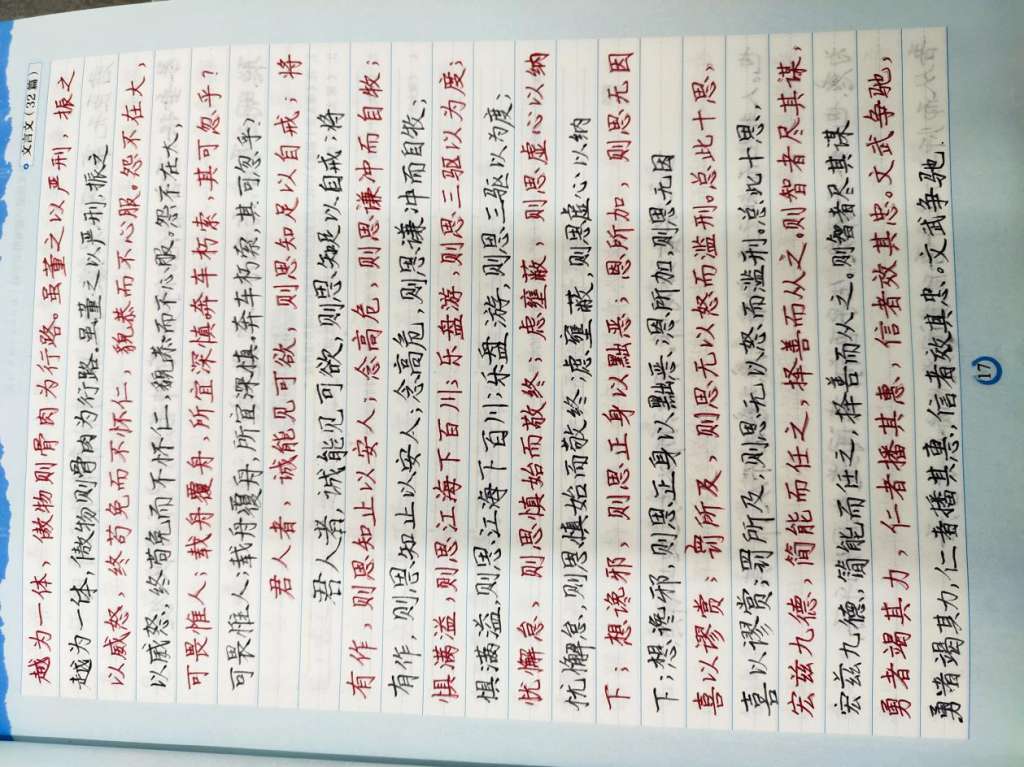 文言文(32篇)
越为一体，傲物则骨肉为行路。虽董之以严刑，振之
越为一体，傲物则骨肉为行路。虽董之以严刑，振之
以威怒，终苟免而不怀仁，貌恭而不心服。怨不在大，
以威怒，终苟免而不怀仁，貌恭而不心服。怨不在大，
可畏惟人；载舟覆舟，所宜深慎奔车朽索，其可忽乎？
可畏惟人；载舟覆舟，所宜深慎。奔车朽索，其可忽乎？
君人者，诚能见可欲，则思知足以自戒；将
君人者，诚能见可欲，则思知足以自戒；将
有作，则思知止以安人；念高危，则思谦冲而自牧；
有作，则思知止以安人；念高危，则思谦冲而自牧；
惧满溢，则思江海下百川；乐盘游，则思三驱以为度；
惧满溢，则思江海下百川；乐盘游，则思三驱以为度；
忧懈怠，则思慎始而敬终；虑壅蔽，则思虚心以纳
忧懈怠，则思慎始而敬终；虑壅蔽，则思虚心以纳
下；想谗邪，则思正身以黜恶；恩所加，则思无因
下；想谗邪，则思正身以黜恶；恩所加，则思无因
喜以谬赏；罚所及，则思无以怒而滥刑。总此十思，
喜以谬赏；罚所及，则思无以怒而滥刑。总此十思，
宏兹九德，简能而任之，择善而从之。则智者尽其谋，
宏兹九德，简能而任之，择善而从之。则智者尽其谋
勇者竭其力，仁者播其惠，信者效其忠。文武争驰，
勇者竭其力，仁者播其惠，信者效其忠。文武争驰.
17